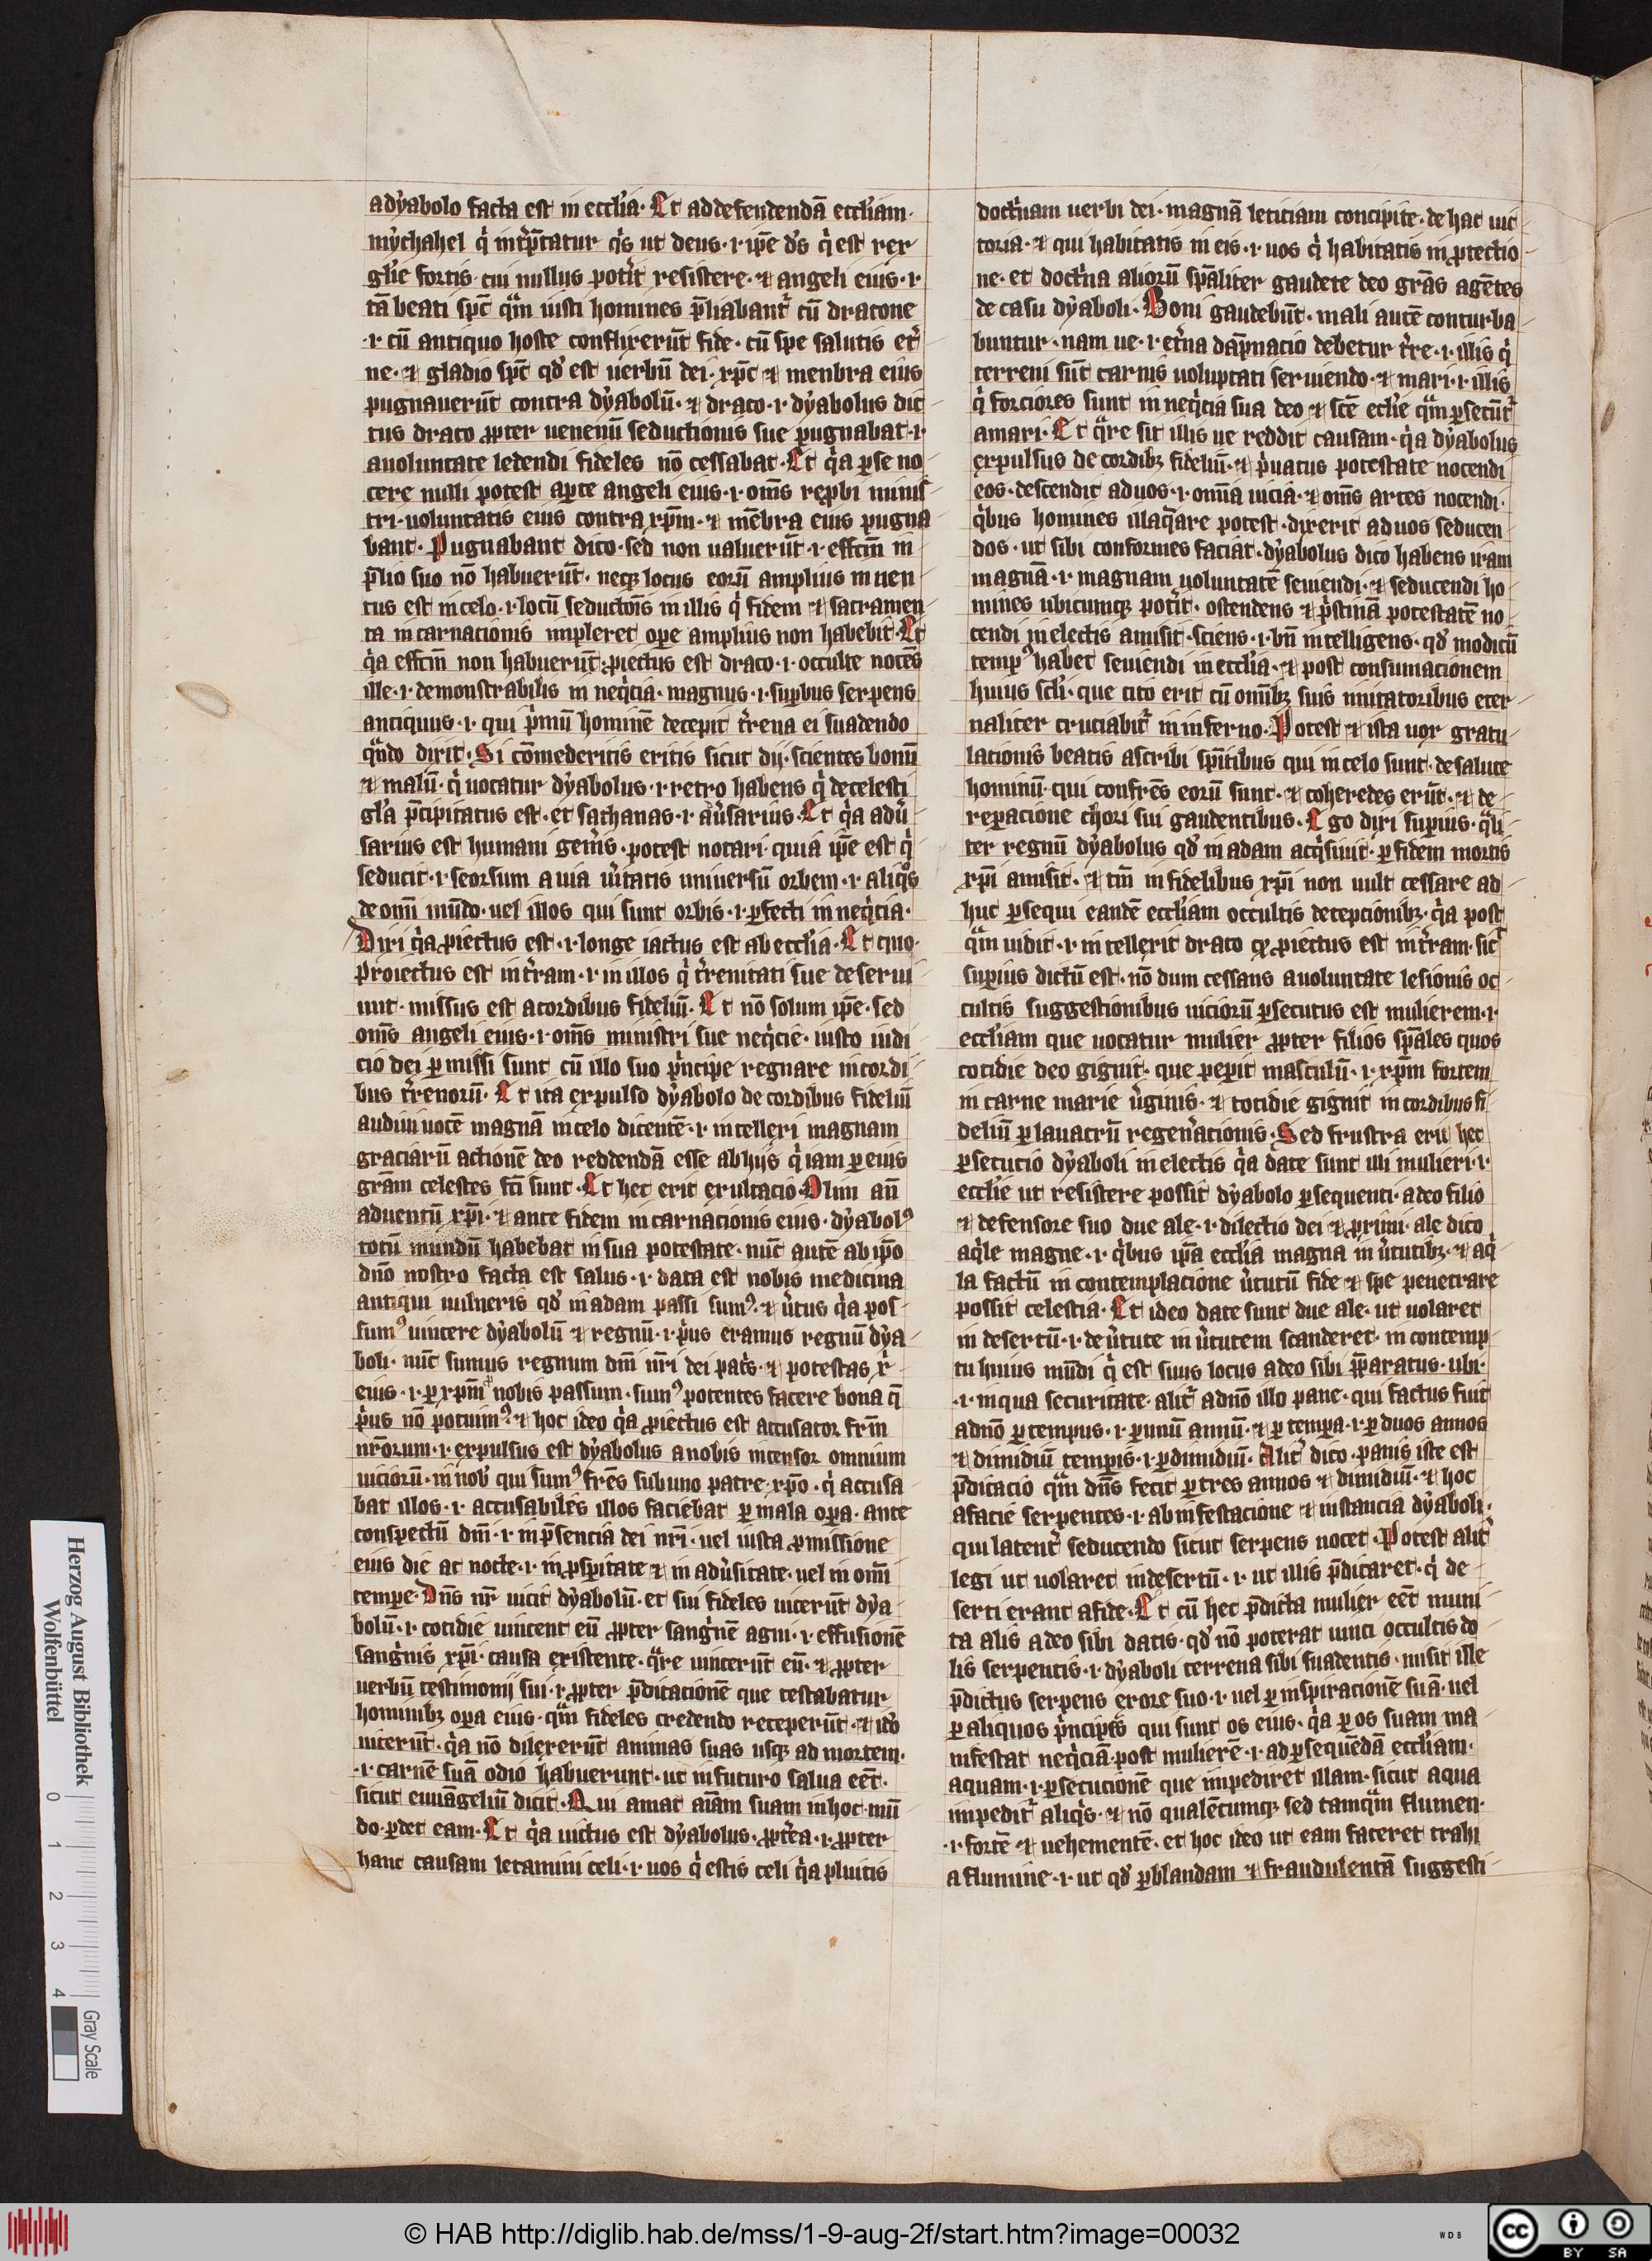 adẏabolo facta est in eccl'ia· Et addefendendā eccl'iam·
mẏchahel q̇ int̾p̄tatur q̇s ut deus·ı·ip̄e d's q̇ est rex
gl'ie fortis· cui nullus pot̾it resistere· ⁊ angeli eius·ı·
tā beati sp̄c qͣm iusti homines p̄liabant̾ cū dracone
·ı·cū antiquo hoste conflixerūt fide· cū spe salutis et̾
ne· ⁊ gladio sp̄c qđ est uerbū dei· xp̄c ⁊ menbra eius
pugnauerūt contra dẏabolū· ⁊ draco·ı·dẏabolus dic
tus draco ꝓpter uenenū seductionis sue pugnabat·ı·
auoluntate ledendi fideles nō cessabat· Et q̇a ꝑse no
cere nulli potest aꝑte angeli eius·ı·om̄s reꝓbi minis
tri· uoluntatis eius contra xp̄m· ⁊ mēbra eius pugna
bant· Pugnabant dico· sed non ualuerūt·ı·effc̄m in
p̄lio suo nō habuerūt· neqꝫ locus eorū amplius inuen
tus est incelo·ı·locū seductōis in illis q̇ fidem ⁊ sacramen
ta incarnationis impleret oꝑe amplius non habebit· Et
q̇a effc̄m non habuerūt· ꝓiectus est draco·ı·occulte nocēs
ille·ı·demonstrabilis in neq̇cia· magnus·ı·suꝑbus serpens
antiquus·ı·qui ṗmū hominē decepit t̾rena ei suadendo
qͣndo dixit· Si cōmederitis eritis sicut dij· scientes bonū
⁊ malū· q̇ uocatur dẏabolus·ı·retro habens q̇ decelesti
gl'a p̄cipitatus est· et sathanas·ı·au̾sarius· Et q̇a adu̾
sarius est humani gen̾is· potest notari· quia ip̄e est q̇
seducit·ı·seorsum auia u̾itatis uniuersū orbem·ı·aliq̇s
deom̄i mūdo· uel illos qui sunt orbis·ı·ꝑfecti in neq̇cia·
Dixi q̇a ꝓiectus est·ı·longe iactus est ab eccl'ia· Et quo
proiectus est in t̾ram·ı·in illos q̇ t̾renitati sue deserui
unt· missus est acordibus fideliū· Et nō solum ip̄e· sed
om̄s angeli eius·ı·om̄s ministri sue neq̇cie· iusto iudi
cio dei ꝑmissi sunt cū illo suo ṗncipe regnare incordi
bus t̾renorū· Et ita expulso dẏabolo de cordibus fideliū
audiui uocē magnā incelo dicentē·ı·intellexi magnam
graciarū actionē deo reddendā esse abhijs q̇ iam ꝑ eius
grām celestes fc̄i sunt· Et hec erit exultacio· Olim an̄
aduentū xp̄i· ⁊ ante fidem incarnacionis eius· dẏabolꝰ
totū mundū habebat in sua potestate· nūc autē ab ip̄o
dn̄o nostro facta est salus·ı·data est nobis medicina
antiqui uulneris qđ in adam passi sumꝰ· ⁊ u̾tus q̇a pos
sumꝰ uincere dẏabolū ⁊ regnū·ı·ṗus eramus regnū dẏa
boli· nūc sumus regnum dn̄i nr̄i dei pat̾s· ⁊ potestas x̄
eius·ı·ꝑ xp̄m ꝓ nobis passum· sumꝰ potentes facere bona q̄
ṗus nō potuimꝰ· ⁊ hoc ideo q̇a ꝓiectus est accusator fr̄m
nr̄orum·ı·expulsus est dẏabolus anobis incensor omnium
uiciorū· in nob' qui sumꝰ fr̄es subuno patre xp̄o· q̇ accusa
bat illos·ı·accusabiles illos faciebat ꝑ mala oꝑa· ante
conspectū dn̄i·ı·in p̄sencia dei nr̄i· uel iusta ꝑmissione
eius die ac nocte·ı·in ꝓsꝑitate ⁊ in adu̾sitate· uel in om̄i
tempe· Dn̄s nr̄ uicit dẏabolū· et sui fideles uicerūt dẏa
bolū·ı·cotidie uincent eū ꝓpter sanġnē agni·ı·effusionē
sanġnis xp̄i· causa existente· qͣre uincerūt eū· ⁊ ꝓpter
uerbū testimonij sui·ı·ꝓpter p̄dicacionē que testabatur
hominibꝫ oꝑa eius· qͣm fideles credendo receperūt· ⁊ ido
uicerūt· q̇a nō dilexerūt animas suas usqꝫ ad mortem·
·ı·carnē suā odio habuerunt· ut in futuro salua eēt·
sicut euuāgeliū dicit· Qui amat aīam suam in hoc mū
do· ꝑdet eam· Et q̇a uictus est dẏabolus· ꝓpt̾ea·ı·ꝓpter
hanc causam letamini celi·ı·uos q̇ estis celi q̇a pluitis
doct̾nam uerbi dei· magnā leticiam concipite· de hac uic
toria· ⁊ qui habitatis in eis·ı·uos q̇ habitatis in ꝓtectio
ne· et doct̾na aliorū sp̄aliter gaudete deo grās agētes
de casu dẏaboli· Boni gaudebūt· mali autē conturba
buntur· nam ue·ı·et̾na dāpnacio debetur t̾re·ı·illis q̇
terreni sūt carnis uoluptati seruiendo· ⁊ mari·ı·illis
q̇ forciores sunt in neq̇cia sua deo ⁊ scē ecl'ie qͣm ꝑsecūt̾
amari· Et qͣre sit illis ue reddit causam· q̇a dẏabolus
expulsus de cordibꝫ fideliū· ⁊ ṗuatus potestate nocendi
eos· descendit aduos·ı·om̄ia uicia· ⁊ om̄s artes nocendi·
q̇bus homines illaq̇are potest· direxit aduos seducen
dos· ut sibi conformes faciat· dẏabolus dico habens iram
magnā·ı·magnam uoluntatē seuiendi· ⁊ seducendi ho
mines ubicumqꝫ pot̾it· ostendens ⁊ ṗstinā potestatē no
cendi in electis amisit· sciens·ı·bn̄ intelligens· qđ modicū
tempꝰ habet seuiendi in eccl'ia· ⁊ post consumacionem
huius scl'i· que cito erit cū om̄ibꝫ suis imitatoribus eter
naliter cruciabit̾ in inferno· Potest ⁊ ista uox gratu
lationis beatis ascribi sp̄itibus qui incelo sunt· desalute
hominū· qui confrēs eorū sunt· ⁊ coheredes erūt· ⁊ de
reparacione chori sui gaudentibus· Ego dixi suꝑius· qͣli
ter regnū dẏabolus qđ in adam acq̇siuit· ꝑ fidem mortis
xp̄i amisit· ⁊ tm̄ in fidelibus xp̄i non uult cessare ad
huc ꝑsequi eandē eccl'iam occultis decepcionibꝫ· q̇a post
qͣm uidit·ı·intellexit draco ꝙ ꝓiectus est in t̾ram· sic̾
suꝑius dictū est· nō dum cessans auoluntate lesionis oc
cultis suggestionibus uiciorū ꝑsecutus est mulierem·ı·
eccl'iam que uocatur mulier ꝓpter filios sp̄ales quos
cotidie deo gignit· que peperit masculū·ı·xp̄m fortem
in carne marie u̾ginis· ⁊ cotidie gignit in cordibus fi
deliū ꝑ lauacrū regen̾acionis· Sed frustra erit hec
ꝑsecucio dẏaboli in electis q̇a date sunt illi mulieri·ı·
eccl'ie ut resistere possit dẏabolo ꝑsequenti· adeo filio
⁊ defensore suo due ale·ı·dilectio dei ⁊ ꝓximi· ale dico
aq̇le magne·ı·q̇bus ip̄a eccl'ia magna in u̾tutibꝫ· ⁊ aq̇
la factū in contemplacione u̾tutū fide ⁊ spe penetrare
possit celestia· Et ideo date sunt due ale· ut uolaret
in desertū·ı·de u̾tute in u̾tutem scanderet· in contemp
tu huius mūdi q̇ est suus locus adeo sibi p̄paratus· ubi·
·ı·inqua securitate· alit̾ adn̄o illo pane· qui factus fuit
adn̄o ꝑ tempus·ı·ꝑ unū annū· ⁊ ꝑ tempa·ı·ꝑ duos annos
⁊ dimidiū temꝑis·ı·ꝑ dimidiū· Alit̾ dico· panis iste est
p̄dicacio qͣm dn̄s fecit ꝑ tres annos ⁊ dimidiū· ⁊ hoc
afacie serpentes·ı·ab infestacione ⁊ instancia dẏaboli·
qui latent̾ seducendo sicut serpens nocet· Potest alit̾
legi ut uolaret indesertū·ı·ut illis p̄dicaret· q̇ de
serti erant afide· Et cū hec p̄dicta mulier eēt muni
ta alis adeo sibi datis· qđ nō poterat uinci occultis do
lis serpentis·ı·dẏaboli terrena sibi suadentis· misit ille
p̄dictus serpens exore suo·ı·uel ꝑ inspiracionē suā· uel
ꝑ aliquos ṗncipes qui sunt os eius· q̇a ꝑ os suam ma
nifestat neq̇ciā· post mulierē·ı·ad ꝑsequēdā eccl'iam·
aquam·ı·ꝑsecucionē que impediret illam· sicut aqua
impedit̾ aliq̇s· ⁊ nō qualēcumqꝫ sed tamqͣm flumen·
·ı·fortē ⁊ uehementē· et hoc ideo ut eam faceret trahi
a flumine·ı·ut qđ ꝑ blandam ⁊ fraudulentā suggesti
Herzog August Bibliothek
Wolfenbüttel
0 1 2 3 4
Gray Scale
© HAB http://diglib.hab.de/mss/1-9-aug-2f/start.htm?image=00032
WDB
cc
BY SA